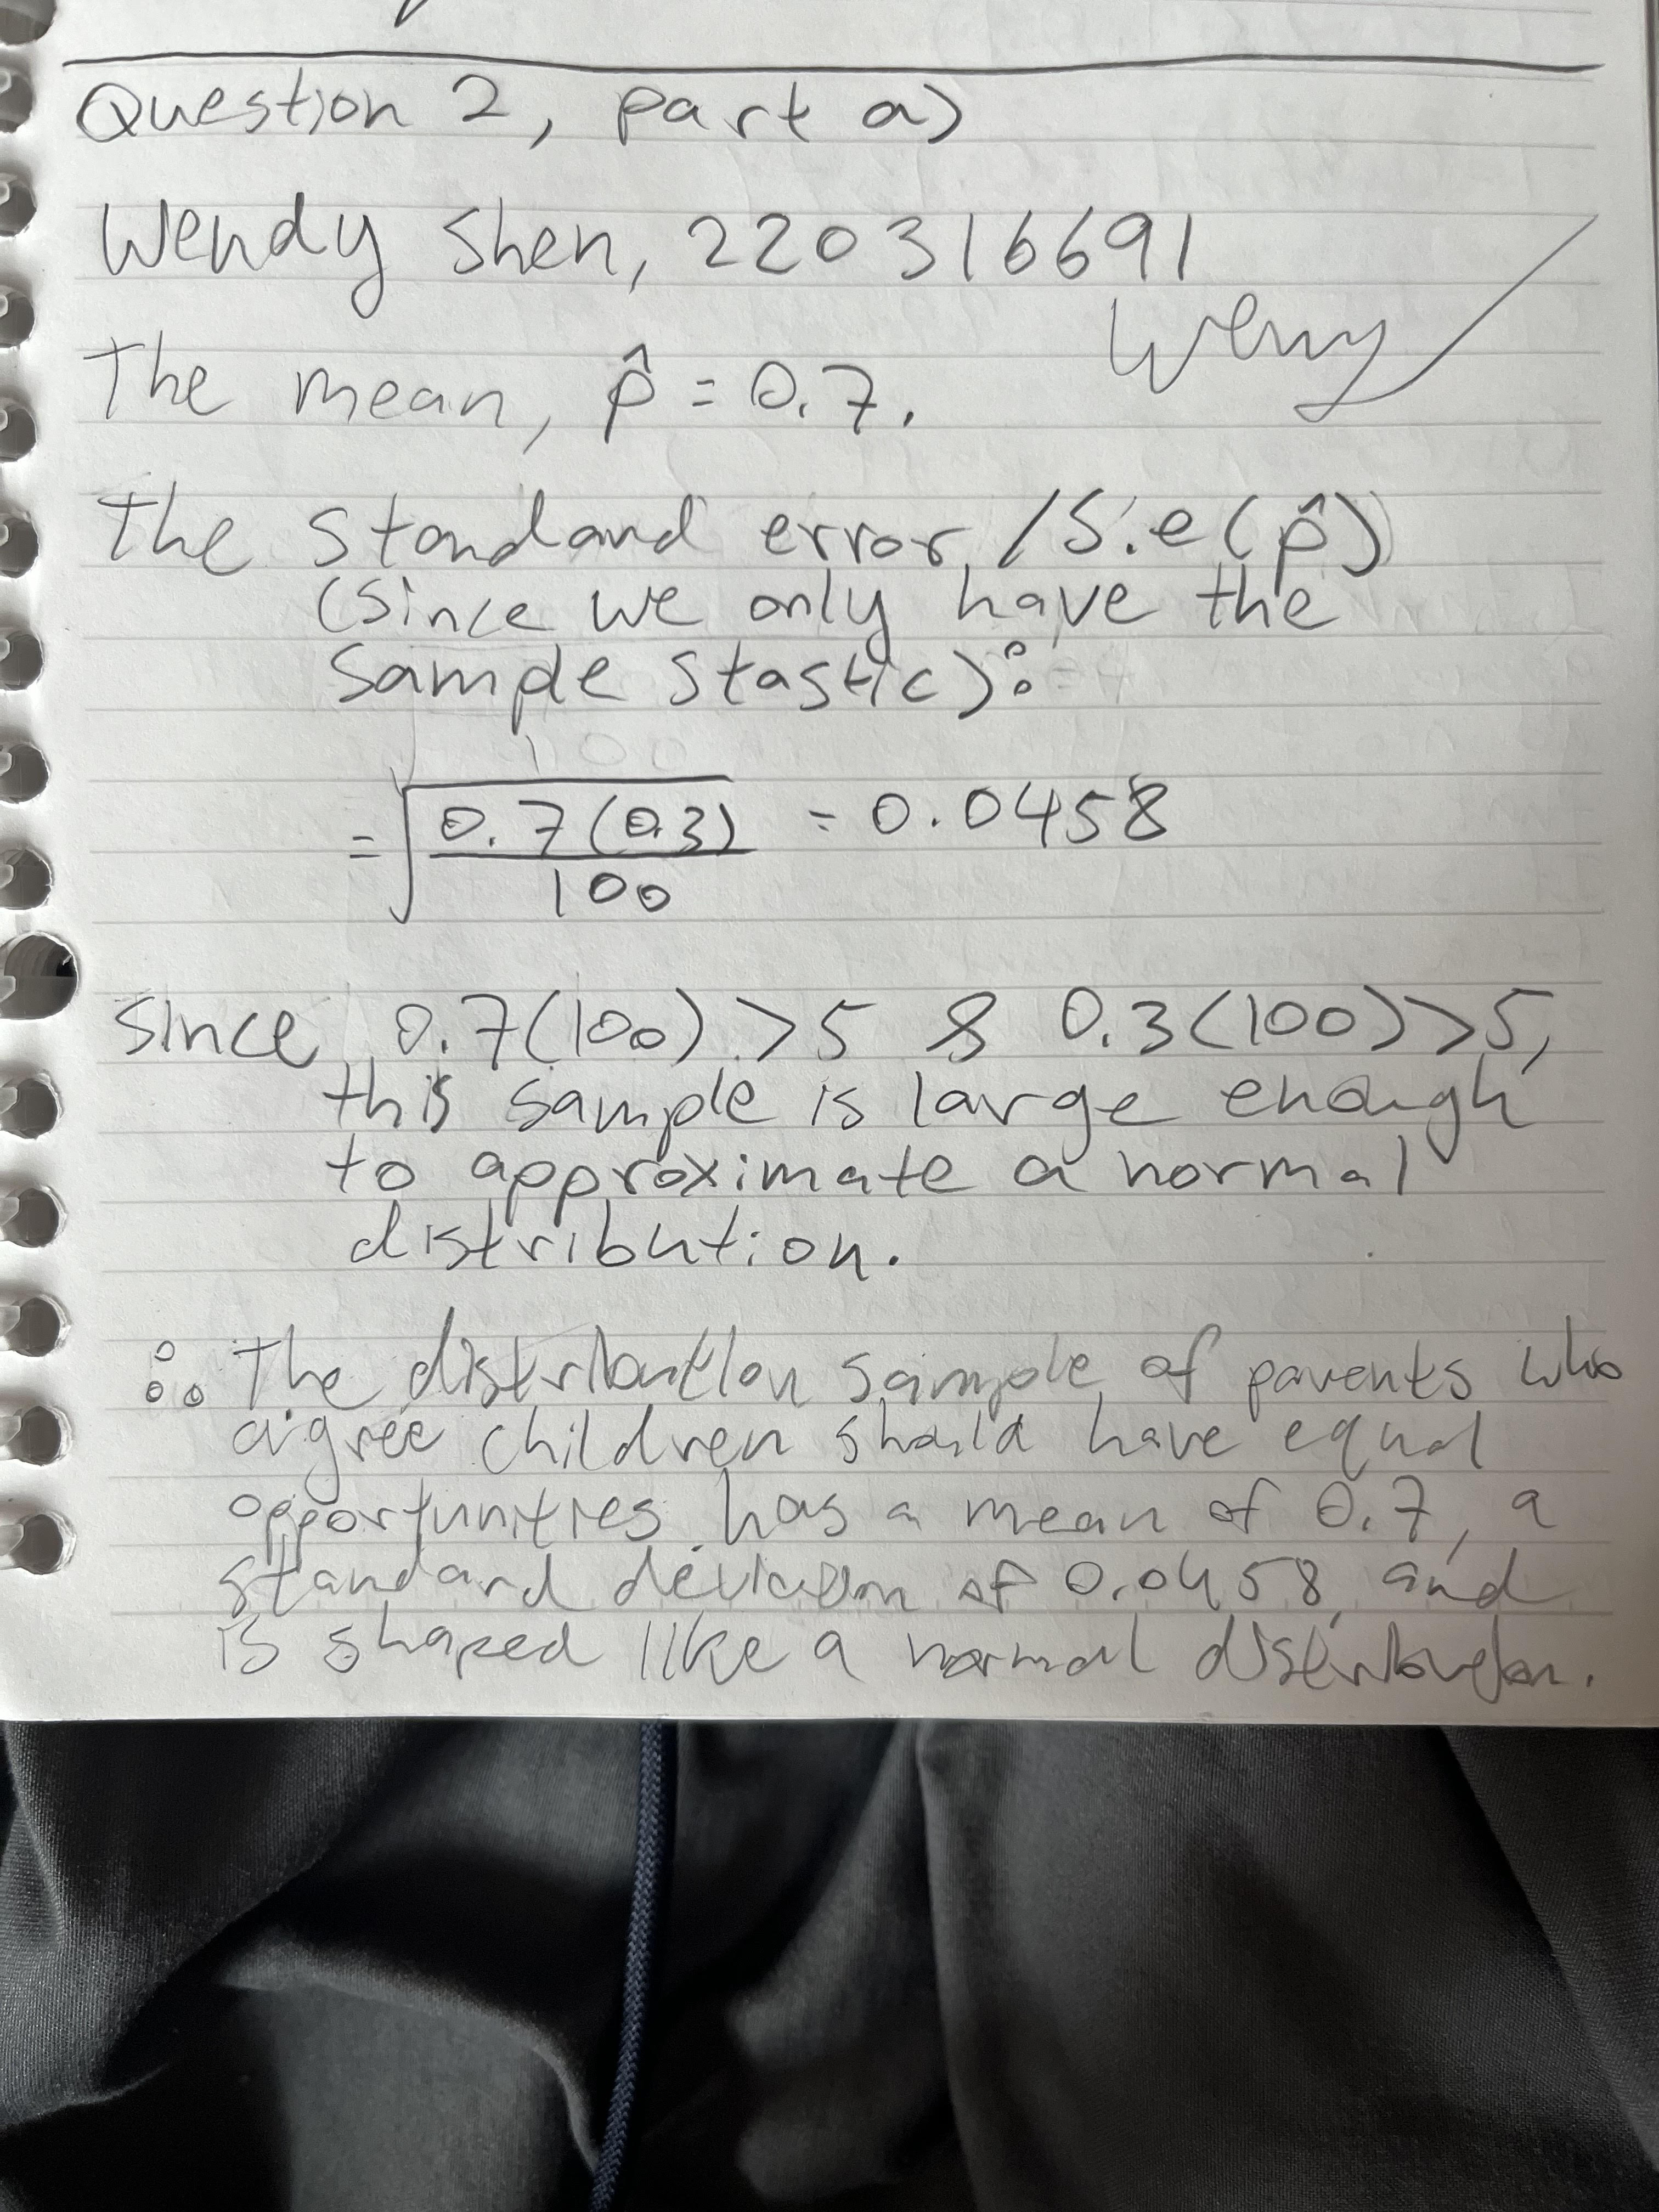 Question 2, part a)
Wendy Shen, 220316691
Wendy
The mean, p̂ = 0.7.
The standard error /S.e(p̂)
(Since we only have the
Sample stastic):
= √(0.7(0.3)/100) = 0.0458
Since 0.7(100) > 5 & 0.3(100) > 5,
this sample is large enough
to approximate a normal
distribution.
∴ The distribution sample of parents who
agree children should have equal
opportunities has a mean of 0.7, a
standard deviation of 0.0458, and
is shaped like a normal distribution.